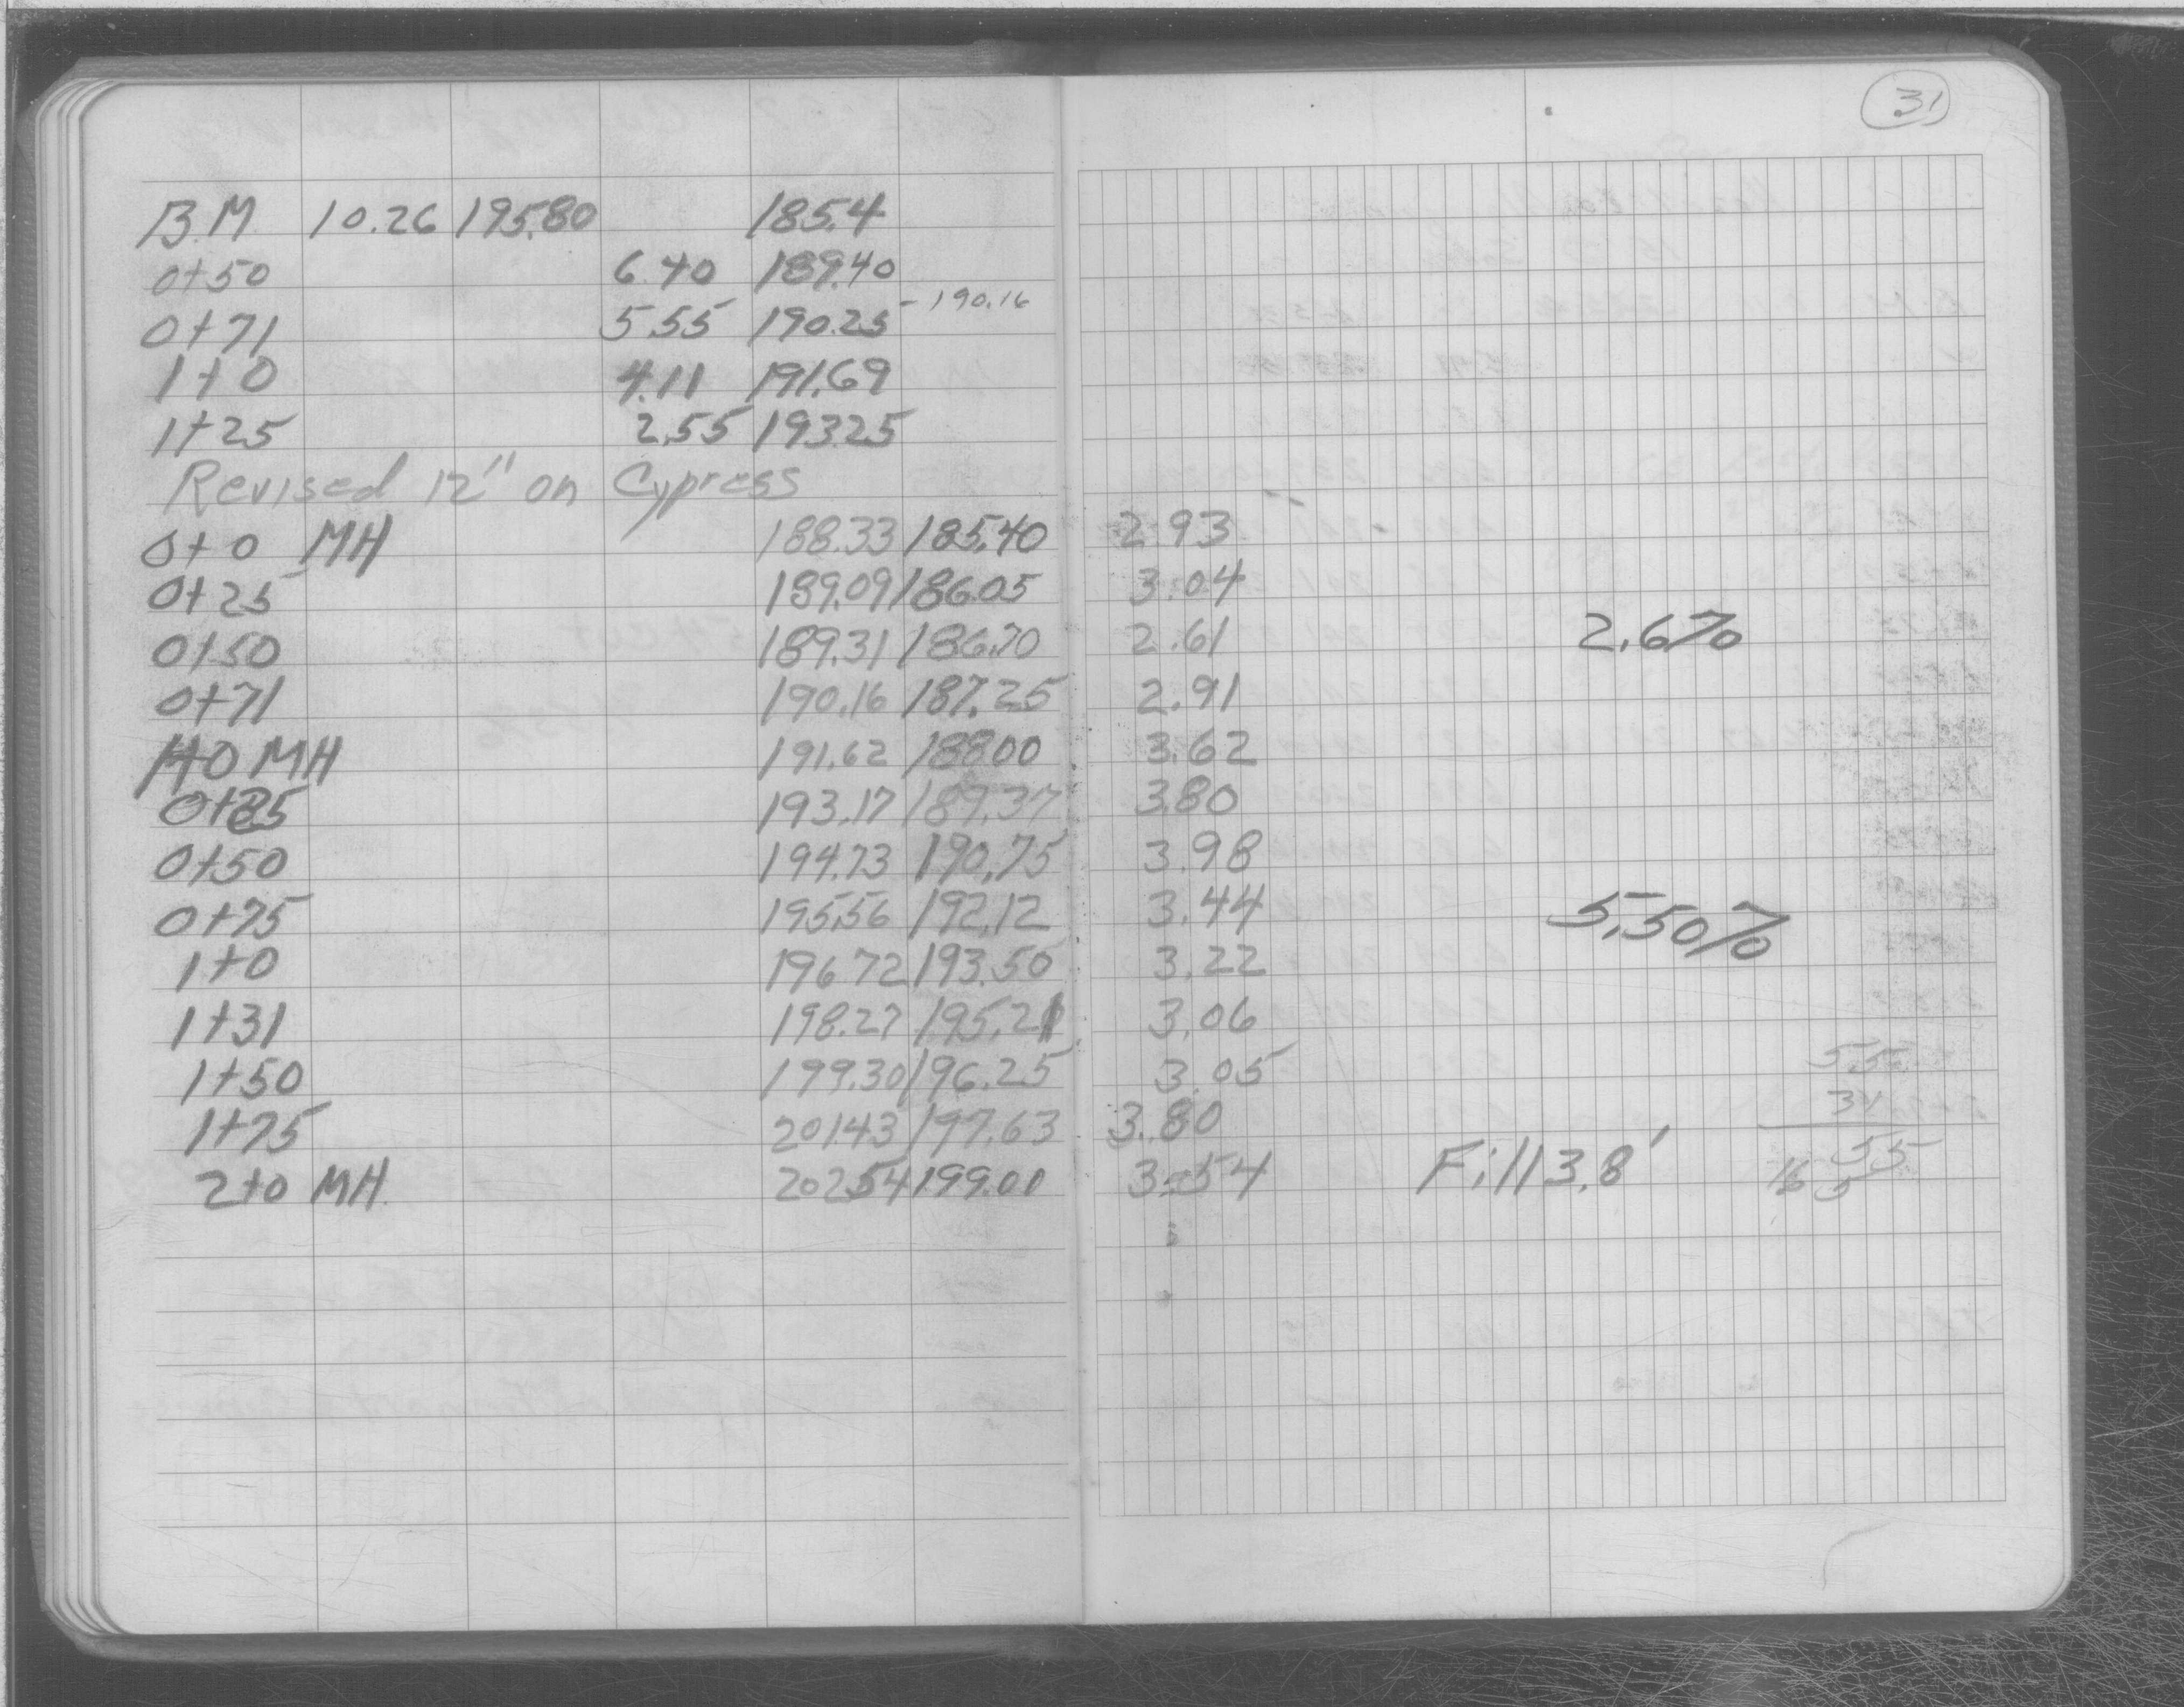 31
B.M. 10.26 195.80 185.4
0+50 6.40 189.40
0+71 5.55 190.25 - 190.16
1+0 4.11 191.69
1+25 2.55 193.25
Revised 12" on Cypress
0+0 MH 188.33 185.40 2.93
0+25 189.09 186.05 3.04
0+50 189.31 186.70 2.61 2.6%
0+71 190.16 187.25 2.91
1+0 MH 191.62 188.00 3.62
0+25 193.17 189.37 3.80
0+50 194.73 190.75 3.98
0+75 195.56 192.12 3.44 5.50%
1+0 196.72 193.50 3.22
1+31 198.27 195.21 3.06
1+50 199.30 196.25 3.05 55
31
1+75 201.43 197.63 3.80 55
2+0 MH. 202.54 199.00 3.54 Fill 3.8' 165